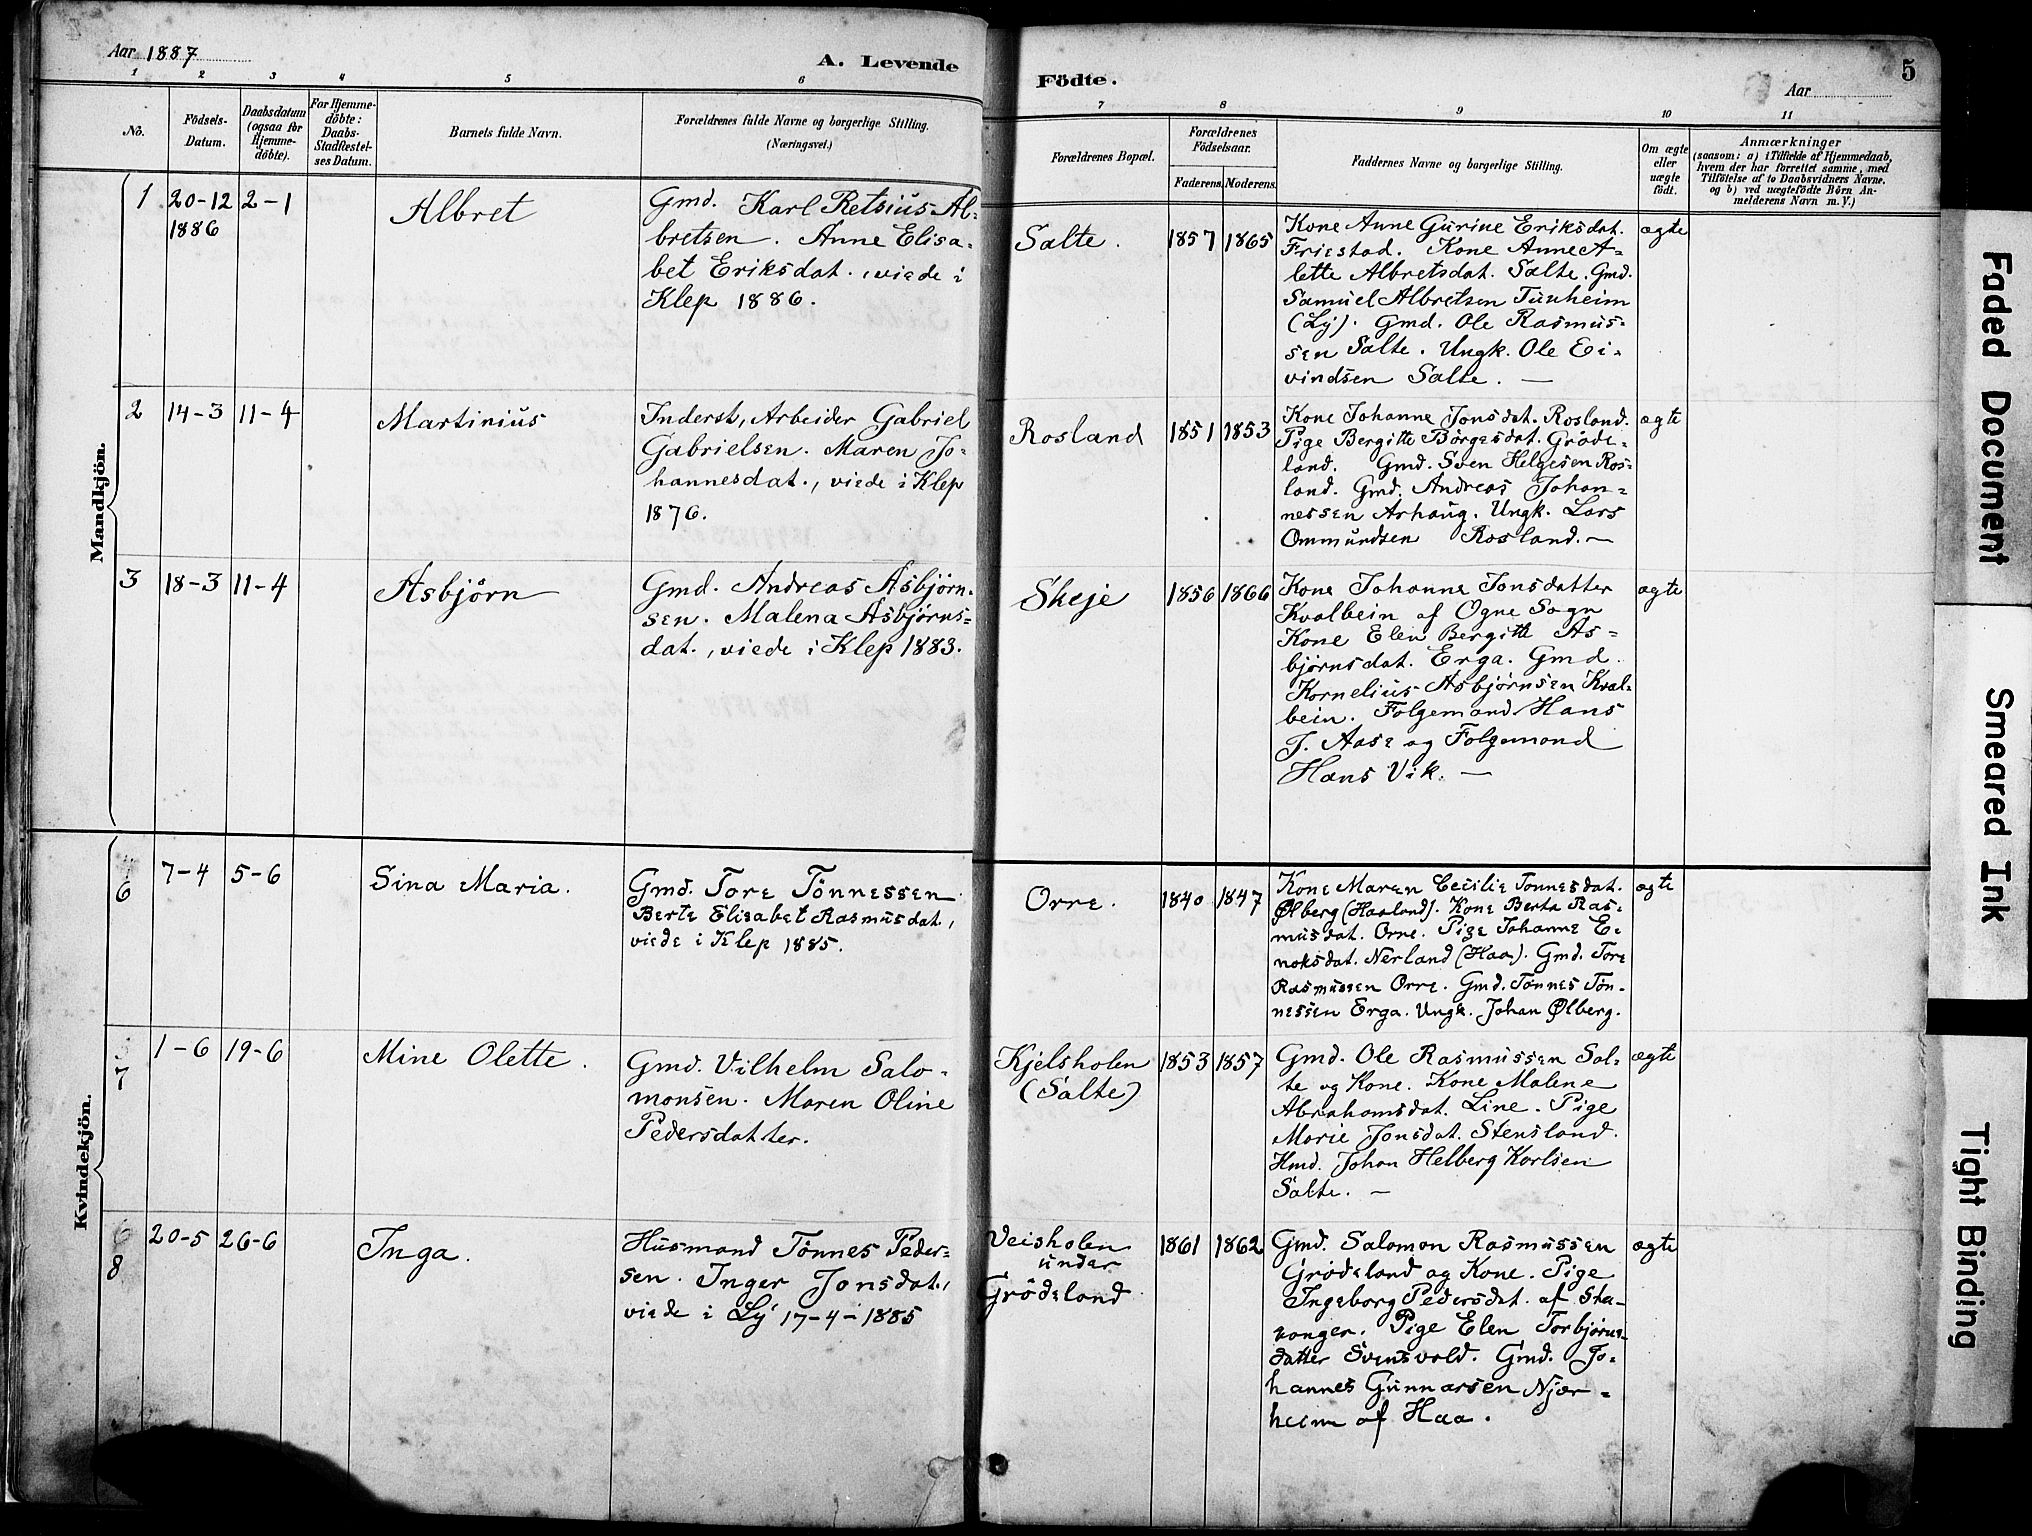 Aar 1887
A. Levende
Födte.
Aar
5
1 2 3 4 5 6 7 8 9 10 11
No.
Födsels-
Datum.
Daabsdatum
(ogsaa for
Hjemme-
döbte).
For Hjemme-
döbte:
Daabs-
Stadfæstel-
ses Datum.
Barnets fulde Navn.
Forældrenes fulde Navne og borgerlige Stilling.
(Næringsvei.)
Forældrenes Bopæl.
Forældrenes
Födselsaar.
Faderens. Moderens.
Faddernes Navne og borgerlige Stilling.
Om ægte
eller
uægte
födt.
Anmærkninger
(saasom: a) i Tilfælde af Hjemmedaab,
hvem der har forrettet samme, med
Tilföielse af to Daabsvidners Navne,
og b) ved uægtefödte Börn An-
melderens Navn m. V.)
Mandkjön.
1
20-12
1886
2-1
Albret
Gmd. Karl Retsius Al-
bretsen. Anne Elisa-
bet Eriksdat. viede i
Klep 1886.
Salte.
1857
1865
Kone Anne Gurine Eriksdat.
Friestad. Kone Anne A-
lette Albretsdat. Salte. Gmd.
Samuel Albretsen Tunheim
(Ly). Gmd. Ole Rasmus-
sen Salte. Ungk. Ole Ei-
vindsen Salte. —
ægte
2
14-3
11-4
Martinius
Inderst, Arbeider Gabriel
Gabrielsen. Maren Jo-
hannesdat., viede i Klep
1876.
Rosland
1851
1853
Kone Johanne Jonsdat. Rosland.
Pige Bergitte Børgesdat. Grøde-
land. Gmd. Sven Helgesen Ros-
land. Gmd. Andreas Johan-
nessen Arhaug. Ungk. Lars
Ommundsen Rosland. —
ægte
3
18-3
11-4
Asbjørn
Gmd. Andreas Asbjørn-
sen. Malena Asbjørns-
dat., viede i Klep 1883.
Skeje
1856
1866
Kone Johanne Jonsdatter
Kvalbein af Ogne Sogn
Kone Elen Bergitte As-
bjørnsdat. Erga. Gmd.
Kornelius Asbjørnsen Kval-
bein. Følgemand Hans
J. Aase og Følgemand
Hans Vik. —
ægte
Kvindekjön.
6
7-4
5-6
Sina Maria.
Gmd. Tore Tønnessen
Berte Elisabet Rasmusdat.,
viede i Klep 1885.
Orre.
1840
1847
Kone Maren Cecilie Tonnesdat.
Ølberg (Haaland). Kone Berta Ras-
musdat. Orre. Pige Johanne E-
noksdat. Nerland (Haa). Gmd. Tore
Rasmussen Orre. Gmd. Tønnes Tøn-
nessen Erga. Ungk. Johan Ølberg.
ægte
7
1-6
19-6
Mine Olette.
Gmd. Vilhelm Salo-
monsen. Maren Oline
Pedersdatter.
Kjelsholen
(Salte)
1853
1857
Gmd. Ole Rasmussen Sal-
te og Kone. Kone Malene
Abrahamsdat. Line. Pige
Marie Jonsdat. Stensland.
Hmd. Johan Helberg Karlsen
Salte. —
ægte
6
8
20-5
26-6
Inga.
Husmand Tønnes Peder-
sen. Inger Jonsdat.,
viede i Ly 17-4-1885
Veisholen
under
Grødeland
1861
1862
Gmd. Salomon Rasmussen
Grødeland og Kone. Pige
Ingeborg Pedersdat. af Sta-
vanger. Pige Elen Torbjørns-
datter Svensvold. Gmd. Jo-
hannes Gunnarsen Njær-
heim af Haa.
ægte
Faded Document
Smeared Ink
Tight Binding